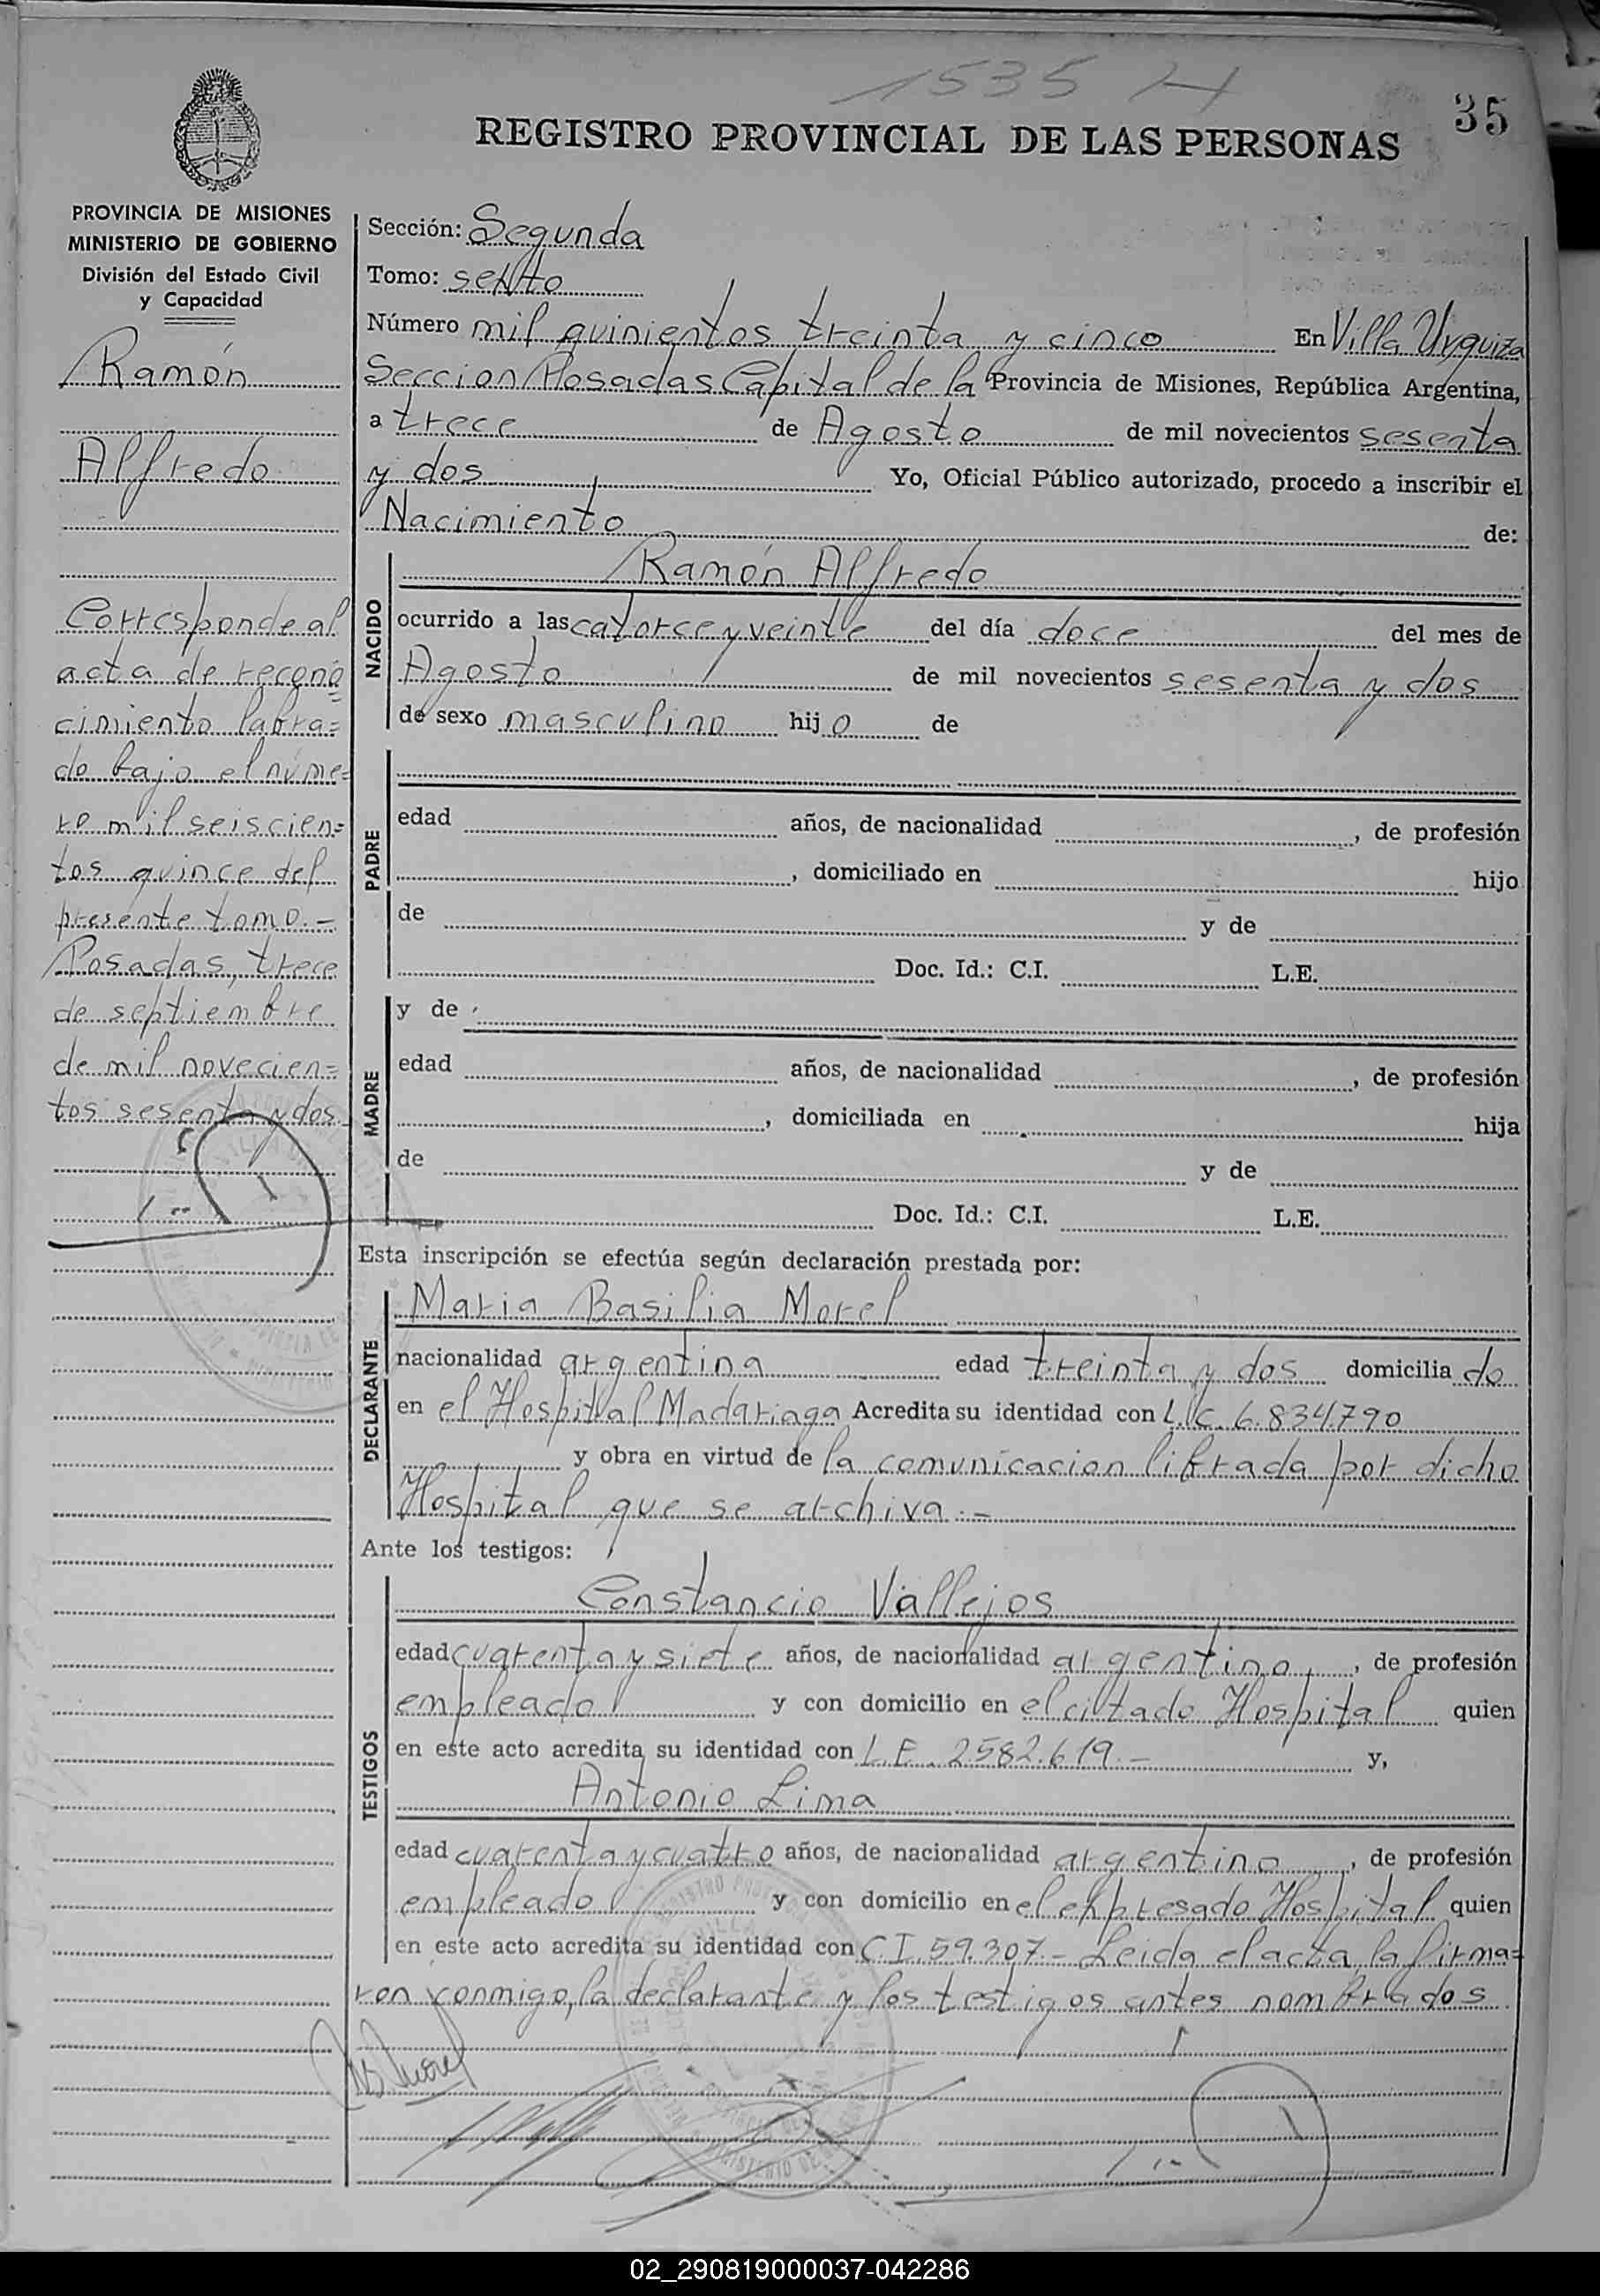 1535 H
35
REGISTRO PROVINCIAL DE LAS PERSONAS
PROVINCIA DE MISIONES
MINISTERIO DE GOBIERNO
División del Estado Civil
y Capacidad
Ramón
Alfredo
Corresponde al
acta de recono
cimiento labra=
do bajo el núme=
ro mil seiscien=
tos quince del
presente tomo.-
Posadas, trece
de septiembre
de mil novecien=
tos sesenta y dos
Sección: Segunda
Tomo: sexto
Número mil quinientos treinta y cinco En Villa Urquiza
Seccion Posadas Capital de la Provincia de Misiones, República Argentina,
a trece de Agosto de mil novecientos sesenta
y dos Yo, Oficial Público autorizado, procedo a inscribir el
Nacimiento de:
NACIDO
Ramón Alfredo
ocurrido a las catorce y veinte del día doce del mes de
Agosto de mil novecientos sesenta y dos
de sexo masculino hij o de
PADRE
edad años, de nacionalidad , de profesión
, domiciliado en hijo
de y de
Doc. Id.: C.I. L.E.
MADRE
y de
edad años, de nacionalidad , de profesión
, domiciliada en hija
de y de
Doc. Id.: C.I. L.E.
Esta inscripción se efectúa según declaración prestada por:
DECLARANTE
Maria Basilia Morel
nacionalidad argentina edad treinta y dos domicilia do
en el Hospital Madariaga Acredita su identidad con L.C. 6.834.790
y obra en virtud de la comunicacion librada por dicho
Hospital que se archiva.-
Ante los testigos:
TESTIGOS
Constancio Vallejos
edad cuarenta y siete años, de nacionalidad argentino, de profesión
empleado y con domicilio en el citado Hospital quien
en este acto acredita su identidad con L.E. 2.582.619.- y,
Antonio Lima
edad cuarenta y cuatro años, de nacionalidad argentino, de profesión
empleado y con domicilio en el expresado Hospital quien
en este acto acredita su identidad con C.I. 59.307.- Leida el acta la firma=
ron conmigo, la declarante y los testigos antes nombrados
02_290819000037-042286